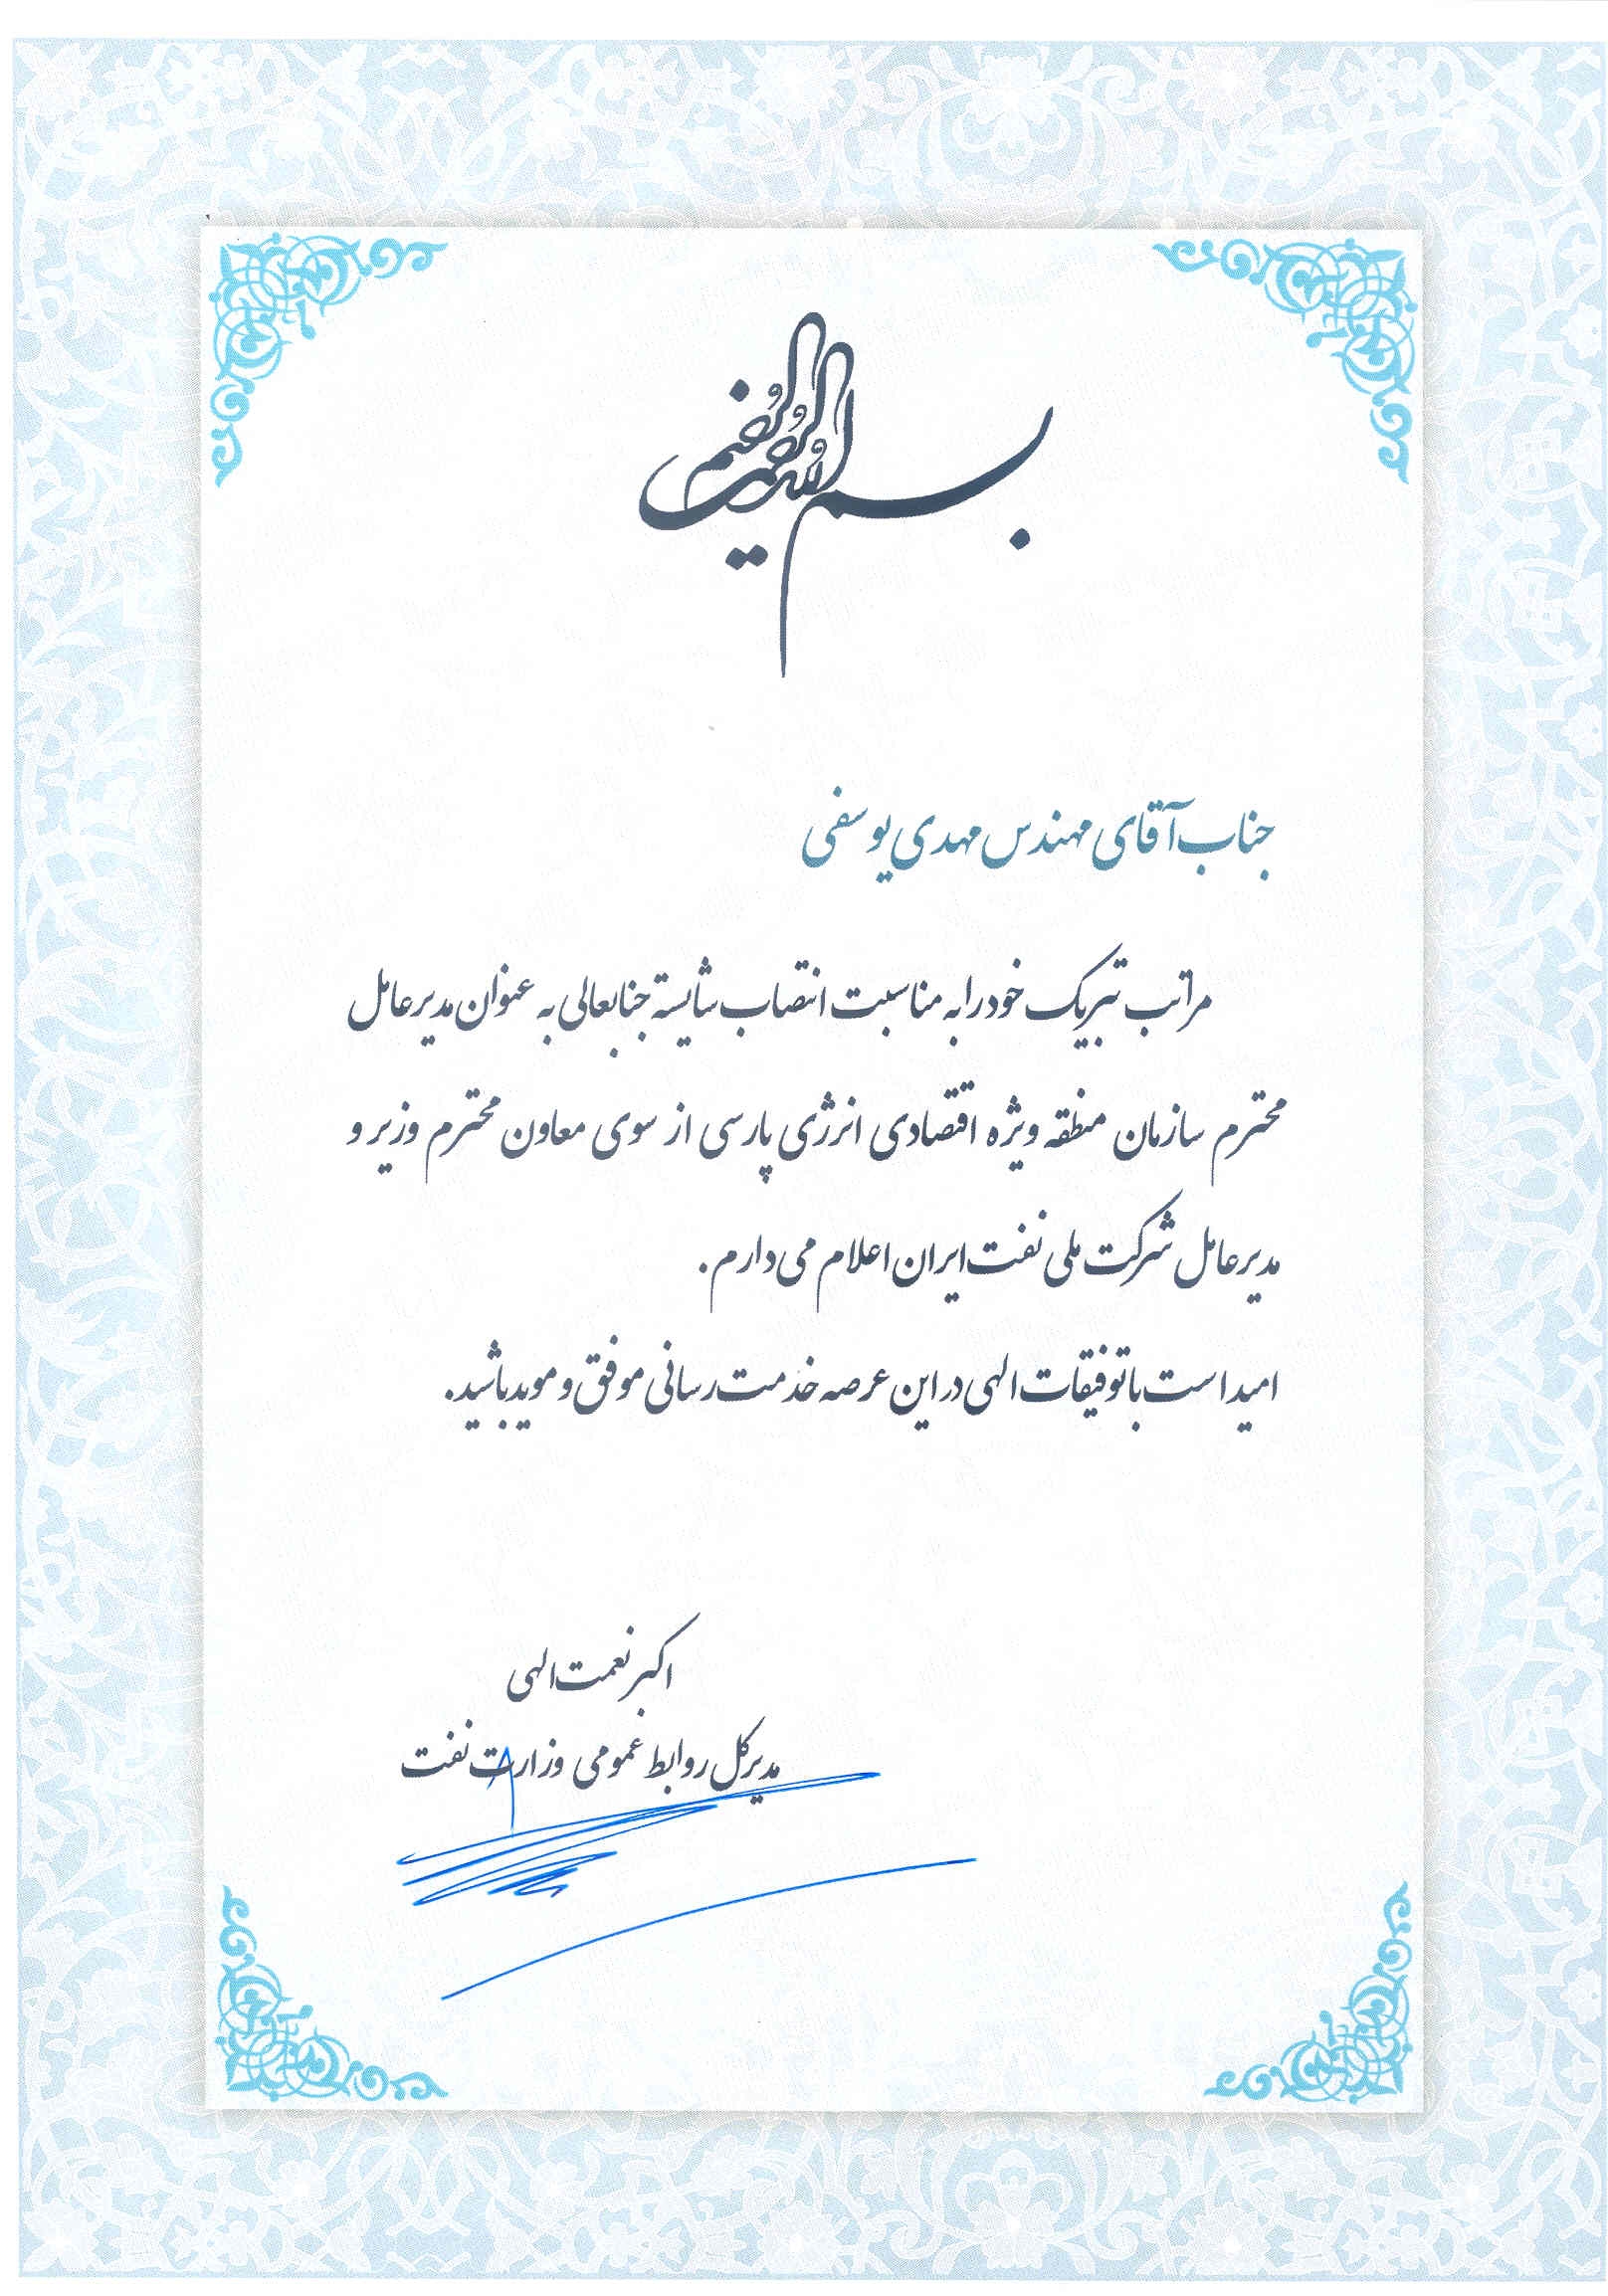 بسم الله الرحمن الرحیم
جناب آقای مهندس مهدی یوسفی
مراتب تبریک خود را به مناسبت انتصاب شایسته جنابعالی به عنوان مدیرعامل
محترم سازمان منطقه ویژه اقتصادی انرژی پارس از سوی معاون محترم وزیر و
مدیرعامل شرکت ملی نفت ایران اعلام می‌دارم.
امید است با توفیقات الهی در این عرصه خدمت رسانی موفق و موید باشید.
اکبر نعمت الهی
مدیرکل روابط عمومی وزارت نفت